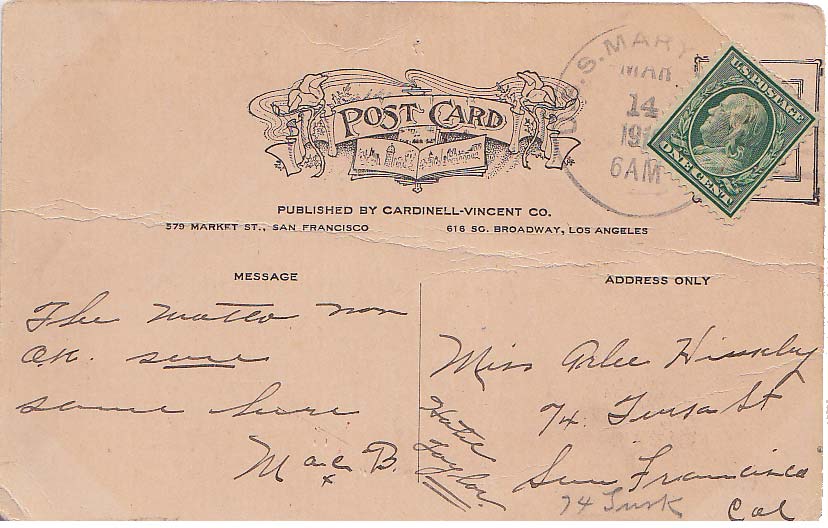 U.S.S. MARY
MAR
14
6AM
U.S. POSTAGE
ONE CENT
POST CARD
PUBLISHED BY CARDINELL-VINCENT CO.
579 MARKET ST., SAN FRANCISCO 616 SO. BROADWAY, LOS ANGELES
MESSAGE
The motto now
O.K. sure
same here
Mac B.
x
ADDRESS ONLY
Miss Arlee
74. St
Hotel
Taylor.
San Francisco
74 Turk
Cal